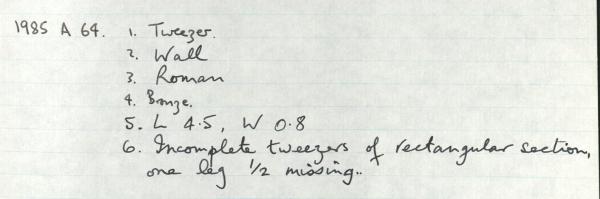 1985 A 64. 1. Tweezer.
2. Wall
3. Roman
4. Bronze.
5. L 4.5, W 0.8
6. Incomplete tweezers of rectangular section,
one leg 1/2 missing..